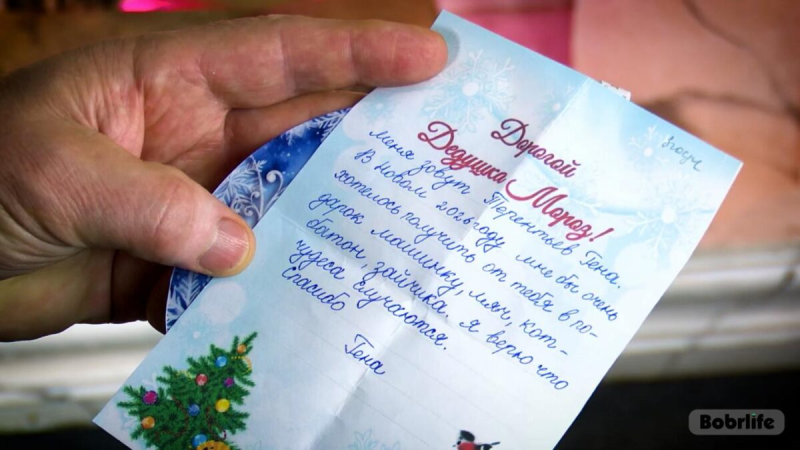 Дорогой
Дедушка Мороз!
меня зовут Терентьев Гена.
В новом 2026 году мне бы очень
хотелось получить от тебя в по-
дарок машинку, мяч, кот-
батон зайчика. Я верю что
чудеса случаются.
Спасибо
Гена
Bobrlife